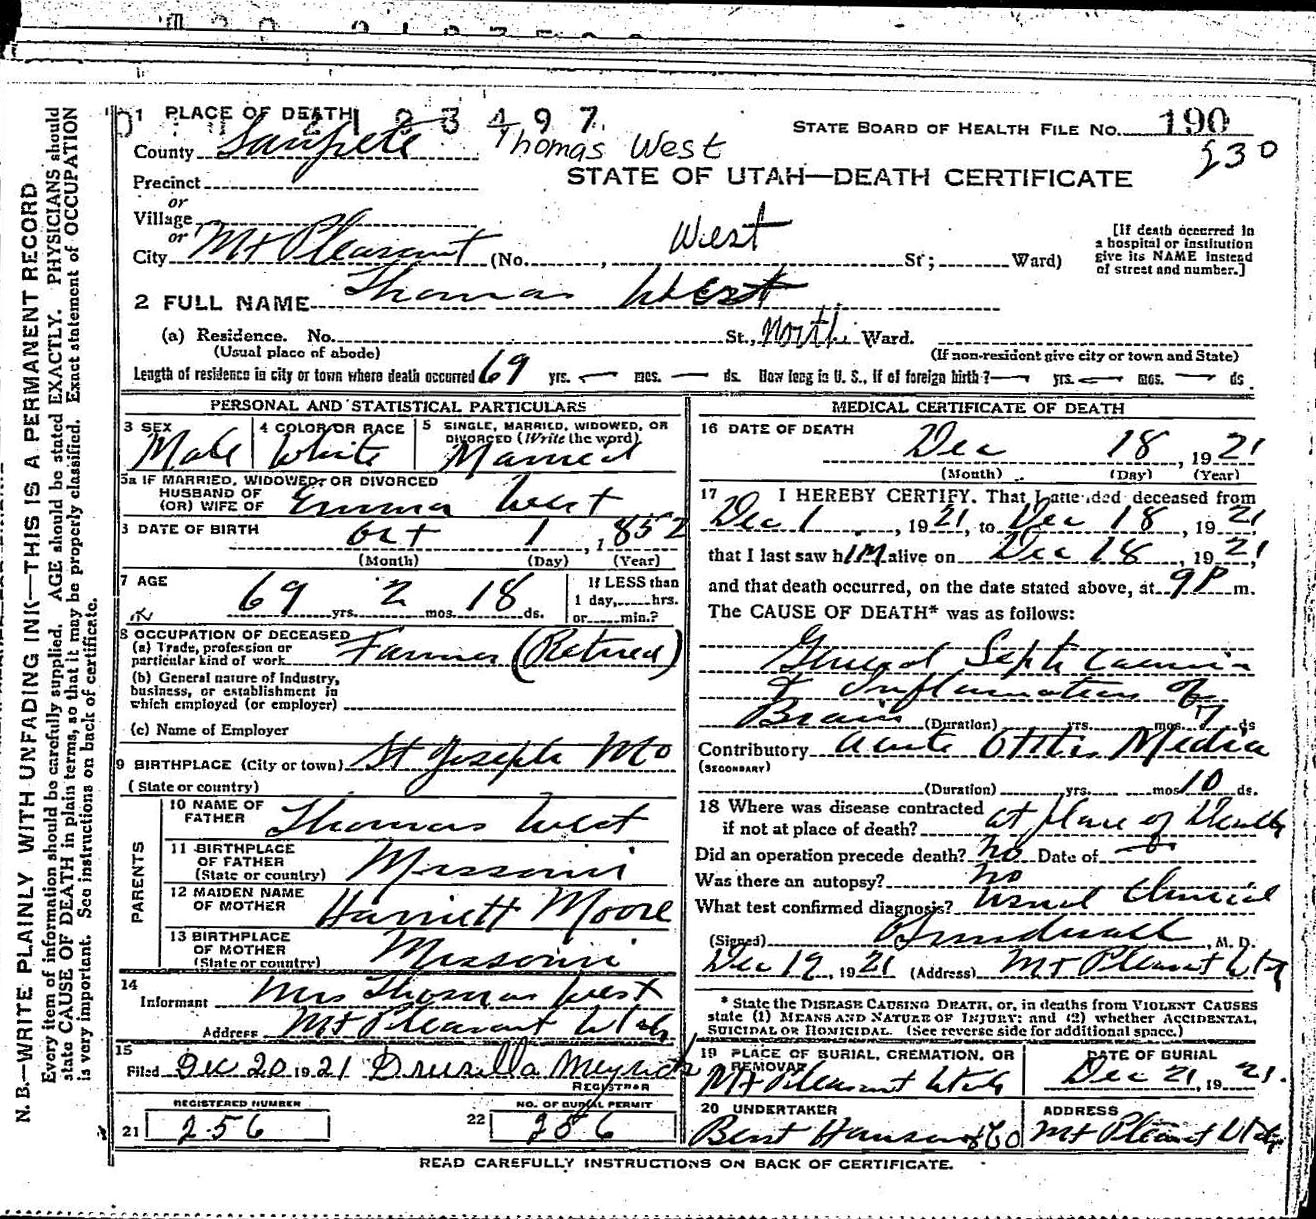 1 PLACE OF DEATH
2 1 9 3 4 9 7
STATE BOARD OF HEALTH FILE No. 190
County Sanpete
Thomas West
930
Precinct
STATE OF UTAH—DEATH CERTIFICATE
or
Village
or
City Mt Pleasant (No. , West St; Ward)
[If death occurred in
a hospital or institution
give its NAME instead
of street and number.]
2 FULL NAME Thomas West
(a) Residence. No. St., North Ward.
(Usual place of abode)
(If non-resident give city or town and State)
Length of residence in city or town where death occurred 69 yrs. — mos. — ds. How long in U. S., if of foreign birth? — yrs. — mos. — ds.
PERSONAL AND STATISTICAL PARTICULARS
3 SEX Male
4 COLOR OR RACE White
5 SINGLE, MARRIED, WIDOWED, OR
DIVORCED (Write the word)
Married
5a IF MARRIED, WIDOWED, OR DIVORCED
HUSBAND OF
(OR) WIFE OF Emma West
DATE OF BIRTH Oct 1, 1852
(Month) (Day) (Year)
7 AGE
69 yrs. 2 mos. 18 ds.
If LESS than
1 day, hrs.
or min.?
8 OCCUPATION OF DECEASED
(a) Trade, profession or
particular kind of work Farmer (Retired)
(b) General nature of industry,
business, or establishment in
which employed (or employer)
(c) Name of Employer
9 BIRTHPLACE (City or town) St Joseph Mo
(State or country)
PARENTS
10 NAME OF
FATHER Thomas West
11 BIRTHPLACE
OF FATHER
(State or country) Missouri
12 MAIDEN NAME
OF MOTHER Harriett Moore
13 BIRTHPLACE
OF MOTHER
(State or country) Missouri
14
Informant Mrs Thomas West
Address Mt Pleasant Utah
15
Filed Dec 20 1921 Druzilla Meyrick
REGISTRAR
REGISTERED NUMBER
21 256
NO. OF BURIAL PERMIT
22 256
MEDICAL CERTIFICATE OF DEATH
16 DATE OF DEATH
Dec 18, 1921
(Month) (Day) (Year)
17 I HEREBY CERTIFY. That I attended deceased from
Dec 1, 1921, to Dec 18, 1921
that I last saw him alive on Dec 18, 1921,
and that death occurred, on the date stated above, at 9P m.
The CAUSE OF DEATH* was as follows:
General Septicaemia
& Inflamation of
Brain (Duration) yrs. mos. 7 ds
Contributory Acute Otitis Media
(SECONDARY)
(Duration) yrs. mos 10 ds.
18 Where was disease contracted
if not at place of death? at place of Death
Did an operation precede death? No Date of
Was there an autopsy? No
What test confirmed diagnosis? Usual Clinical
(Signed) , M. D.
Dec 19, 1921 (Address) Mt Pleasant Utah
* State the DISEASE CAUSING DEATH, or, in deaths from VIOLENT CAUSES
state (1) MEANS AND NATURE OF INJURY; and (2) whether ACCIDENTAL,
SUICIDAL OR HOMICIDAL. (See reverse side for additional space.)
19 PLACE OF BURIAL, CREMATION, OR
REMOVAL
Mt Pleasant Utah
DATE OF BURIAL
Dec 21, 1921.
20 UNDERTAKER
Bent Hansen & Co
ADDRESS
Mt Pleasant Utah
READ CAREFULLY INSTRUCTIONS ON BACK OF CERTIFICATE.
N. B.—WRITE PLAINLY WITH UNFADING INK—THIS IS A PERMANENT RECORD
Every item of information should be carefully supplied. AGE should be stated EXACTLY. PHYSICIANS should
state CAUSE OF DEATH in plain terms, so that it may be properly classified. Exact statement of OCCUPATION
is very important. See instructions on back of certificate.